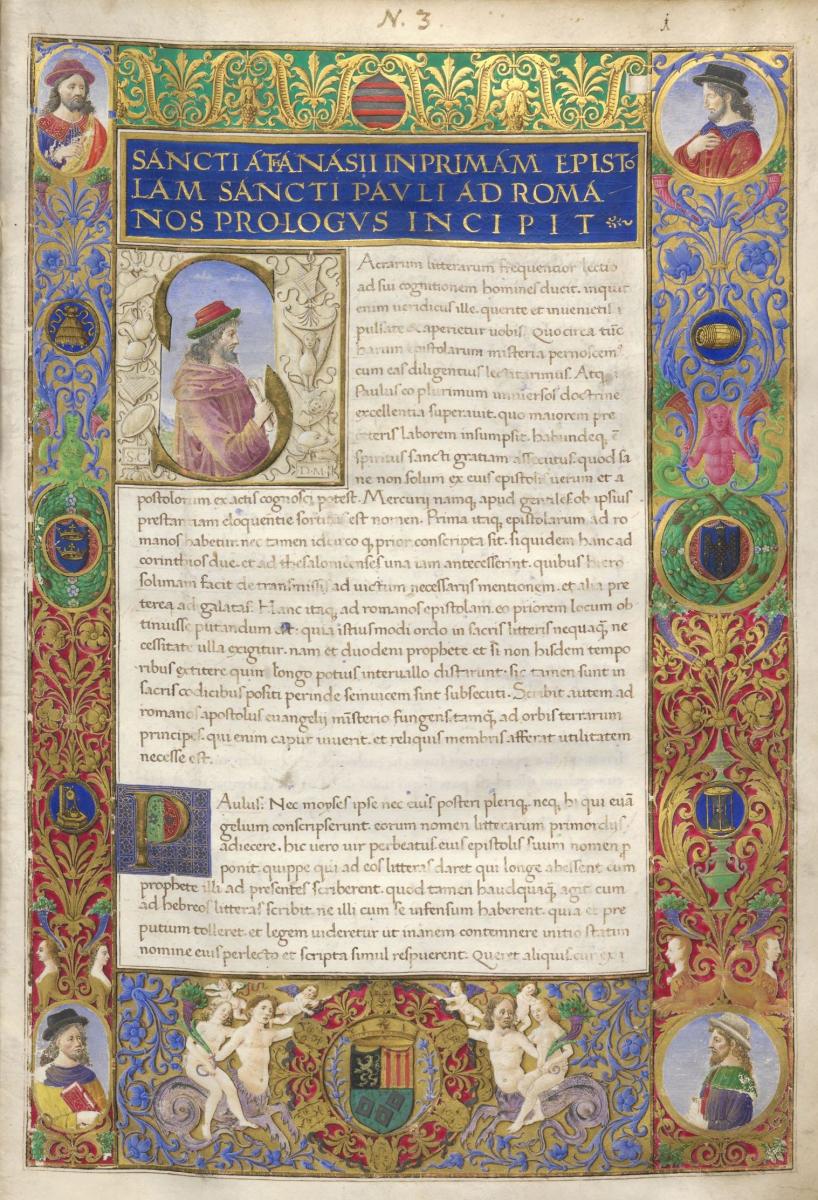 N. 3
1
SANCTI ATANASII IN PRIMAM EPISTO
LAM SANCTI PAVLI AD ROMA
NOS PROLOGVS INCIPIT
S
Acrarum litterarum frequentior lectio
ad sui cognitionem homines ducit. inquit
enim ueridicus ille. querite et inuenietis
pulsate & aperietur uobis. Quocirca tūc
harum epistolarum misteria pernoscem9
cum eas diligentius lectitarimus. Atq;
Paulus eo plurimum uniuersos doctrine
excellentia superauit. quo maiorem pre
ceteris laborem insumpsit. habundeq; ē
spiritus sancti gratiam assecutus. quod sa
ne non solum ex eius epistolis uerum et a
S·C
D·M
postolorum ex actis cognosci potest. Mercurii namq; apud gentiles ob ipsius
prestantiam eloquentie sortitus est nomen. Prima itaq; epistolarum ad ro
manos habetur. nec tamen idcirco q prior conscripta sit. siquidem hanc ad
corinthios due. et ad thesalonicenses una iam antecesserint. quibus hiero
solimam facit de transmissis ad uictum necessariis mentionem. et alia pre
terea ad galatas. Hanc itaq; ad romanos epistolam. eo priorem locum ob
tinuisse putandum est. quia istiusmodi ordo in sacris litteris nequaq̄ ne
cessitate ulla exigitur. nam et duodeni prophete et si non hisdem tempo
ribus extitere quin longo potius interuallo distarunt. sic tamen sunt in
sacris codicibus positi perinde seinuicem sint subsecuti. Scribit autem ad
romanos apostolus euangelii mīsterio fungens. tamq̄ ad orbis terrarum
principes. qui enim caput iuuerit. et reliquis membris afferat utilitatem
necesse est.
P
Aulus. Nec moyses ipse nec eius posteri pleriq; neq; hi qui euā
gelium conscripserunt. eorum nomen litterarum primordiis
adiecere. hic uero uir perbeatus eius epistolis suum nomen p
ponit. quippe qui ad eos litteras daret qui longe abessent cum
prophete illi ad presentes scriberent. quod tamen haudquaq̄ agit cum
ad hebreos litteras scribit. ne illi cum se infensum haberent. quia et pre
putium tolleret. et legem uideretur ut inanem contemnere initio statim
nomine eius perlecto et scripta simul respuerent. Queret aliquis. cur